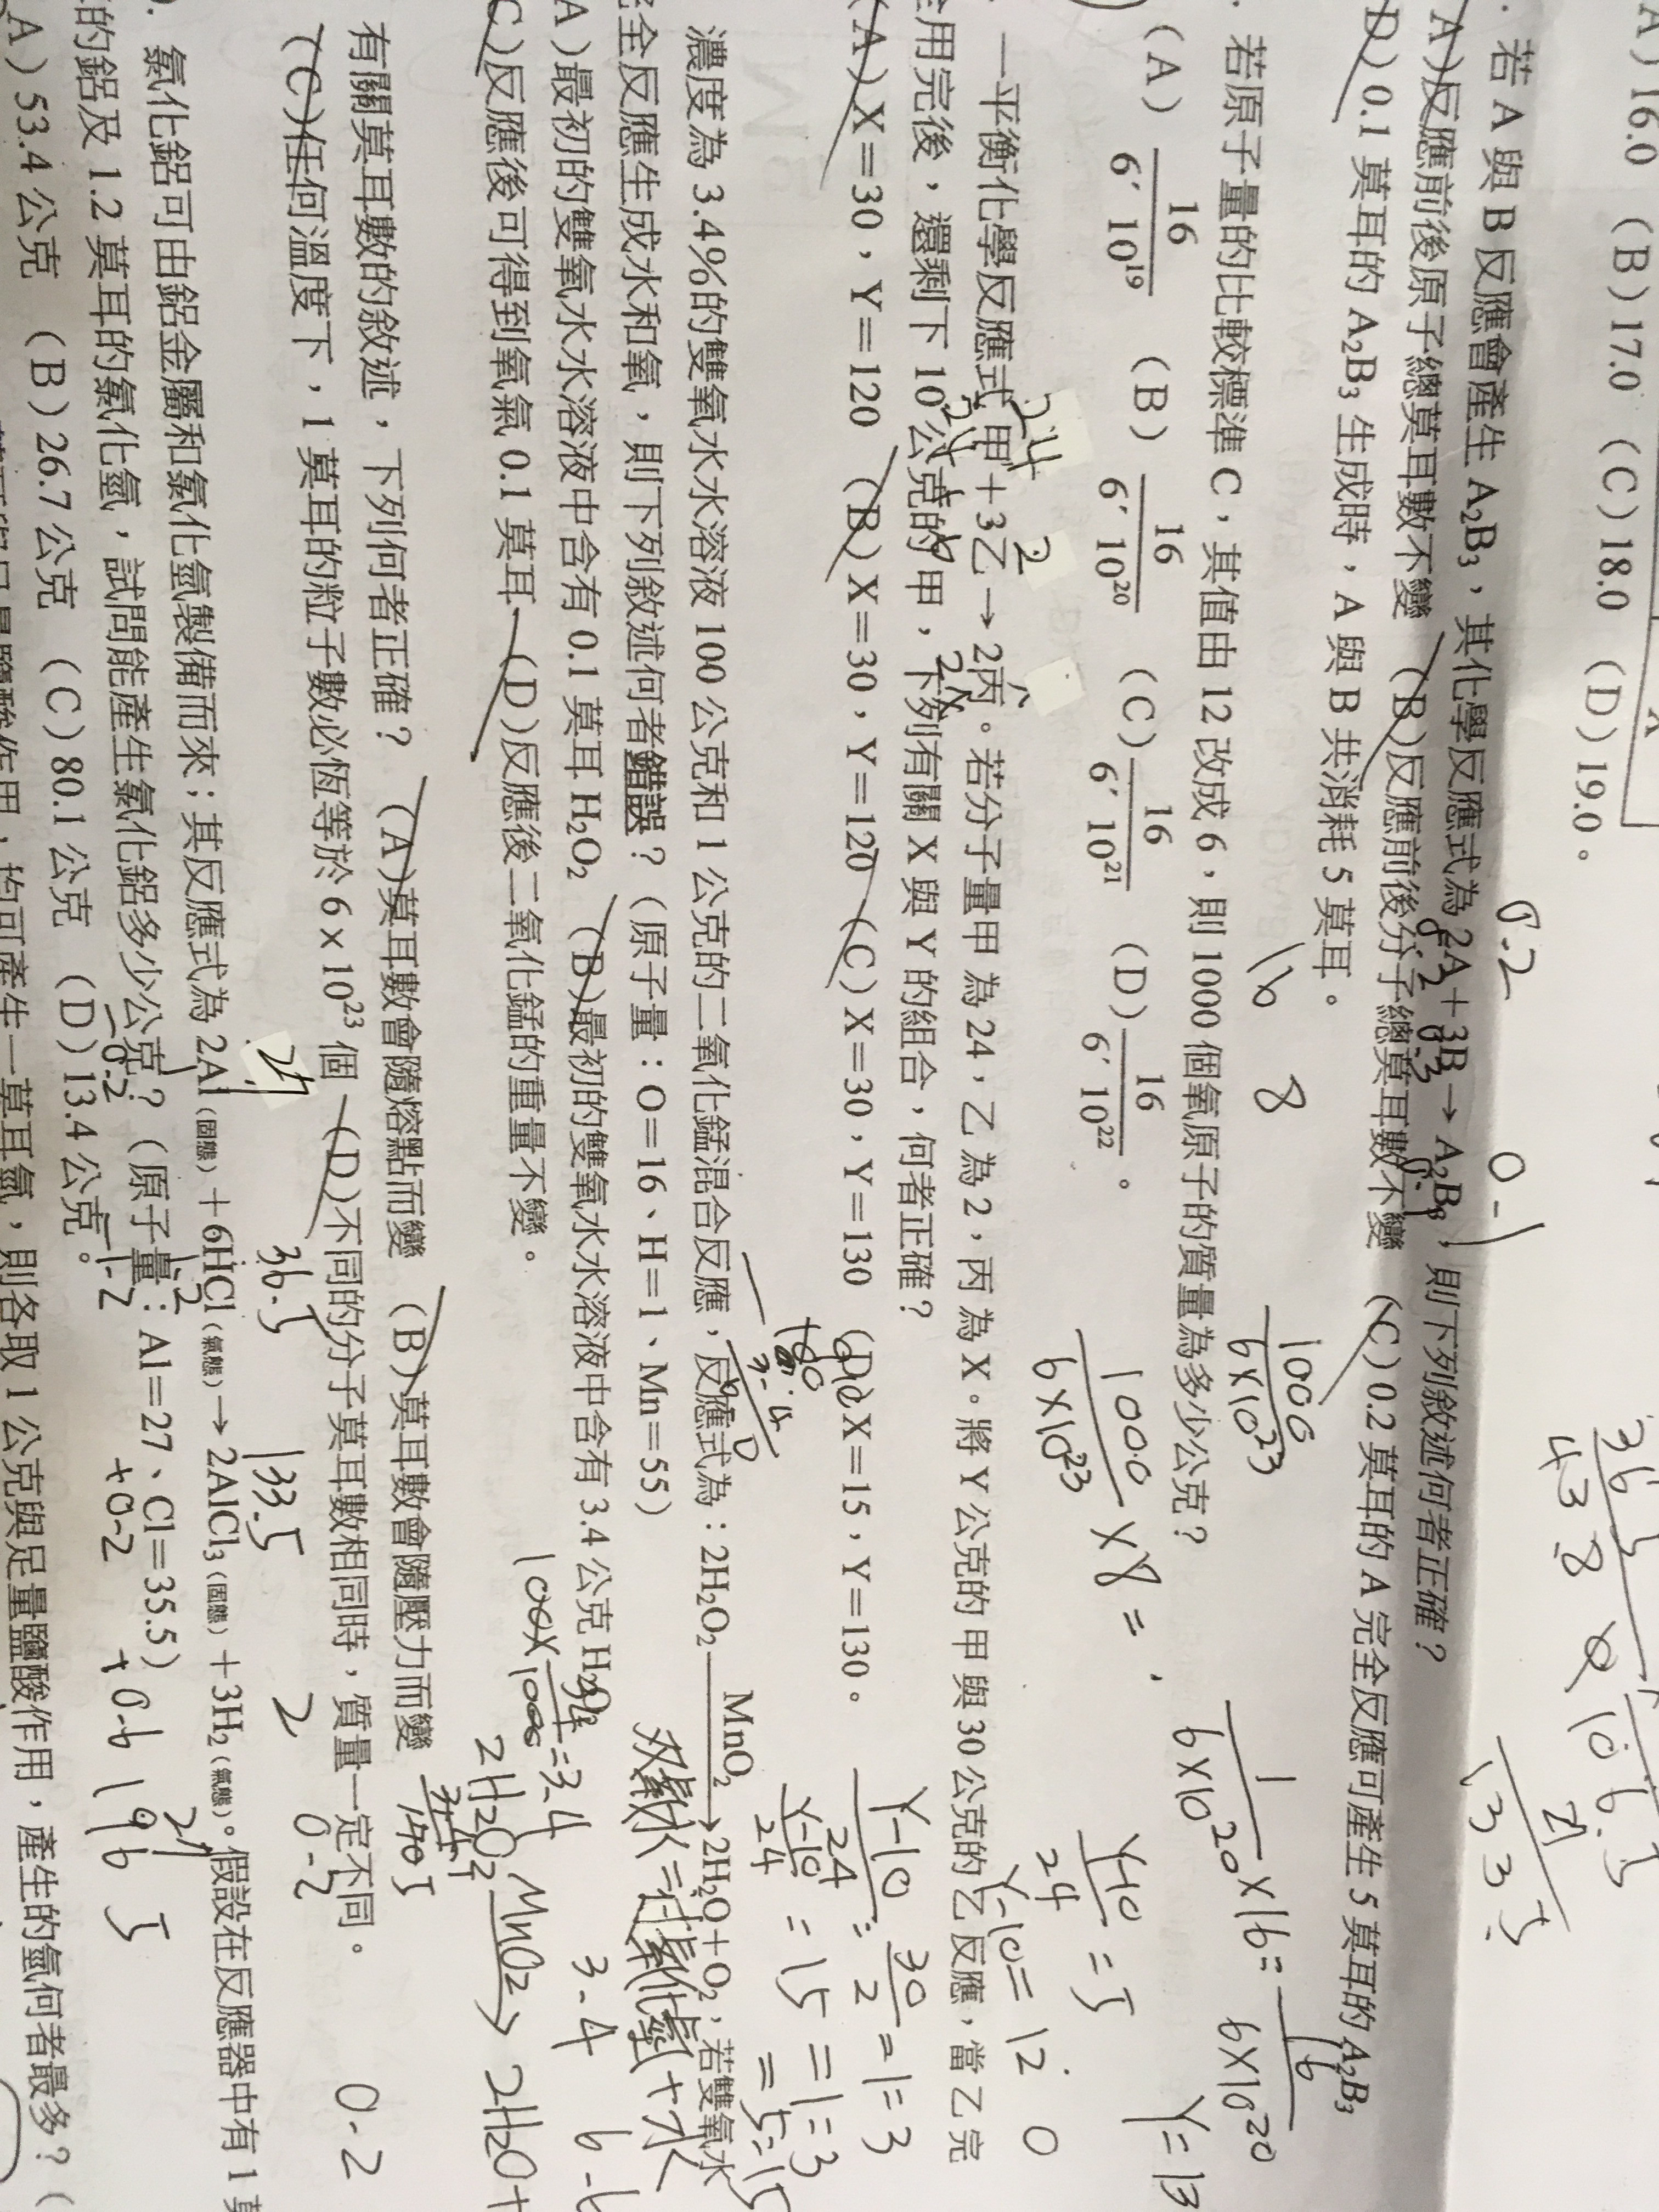 A）16.0 （B）17.0 （C）18.0 （D）19.0。
若 A 與 B 反應會產生 A₂B₃，其化學反應式為 2A＋3B→A₂B₃，則下列敘述何者正確？
A）反應前後原子總莫耳數不變 （B）反應前後分子總莫耳數不變 （C）0.2 莫耳的 A 完全反應可產生 5 莫耳的 A₂B₃
D）0.1 莫耳的 A₂B₃ 生成時，A 與 B 共消耗 5 莫耳。
若原子量的比較標準 C，其值由 12 改成 6，則 1000 個氧原子的質量為多少公克？
（A） 16/6′10¹⁹ （B） 16/6′10²⁰ （C） 16/6′10²¹ （D） 16/6′10²² 。
一平衡化學反應式 甲＋3乙→2丙。若分子量甲為 24，乙為 2，丙為 X。將 Y 公克的甲與 30 公克的乙反應，當乙完
全用完後，還剩下 10 公克的甲，下列有關 X 與 Y 的組合，何者正確？
（A）X＝30，Y＝120 （B）X＝30，Y＝120 （C）X＝30，Y＝130 （D）X＝15，Y＝130。
濃度為 3.4%的雙氧水水溶液 100 公克和 1 公克的二氧化錳混合反應，反應式為：2H₂O₂ MnO₂→2H₂O＋O₂，若雙氧水
完全反應生成水和氧，則下列敘述何者錯誤？（原子量：O＝16、H＝1、Mn＝55）
A）最初的雙氧水水溶液中含有 0.1 莫耳 H₂O₂ （B）最初的雙氧水水溶液中含有 3.4 公克 H₂O₂
C）反應後可得到氧氣 0.1 莫耳 （D）反應後二氧化錳的重量不變。
有關莫耳數的敘述，下列何者正確？ （A）莫耳數會隨熔點而變 （B）莫耳數會隨壓力而變
（C）任何溫度下，1 莫耳的粒子數必恆等於 6×10²³ 個 （D）不同的分子莫耳數相同時，質量一定不同。
氯化鋁可由鋁金屬和氯化氫製備而來；其反應式為 2Al（固態）＋6HCl（氣態）→2AlCl₃（固態）＋3H₂（氣態）。假設在反應器中有 1 莫
的鋁及 1.2 莫耳的氯化氫，試問能產生氯化鋁多少公克？（原子量：Al＝27、Cl＝35.5）
A）53.4 公克 （B）26.7 公克 （C）80.1 公克 （D）13.4 公克。
一莫耳氫，則各取 1 公克與足量鹽酸作用，產生的氫何者最多？（
0.2
0-1
16 8
1000/6×10²³
1000/6×10²³ ×8=
1/6×10²⁰ ×16= 16/6×10²⁰
Y-10/24 = 5
Y-10= 12 0
Y=13
Y-10/24 = 30/2 = 1=3
Y-10/24 = 15 = 1=3
= 5=15
100× 3.4/100 = 3.4
2H₂O₂ MnO₂→ 2H₂O+
24
36.5
133.5
0-2
+0-2
+0-6